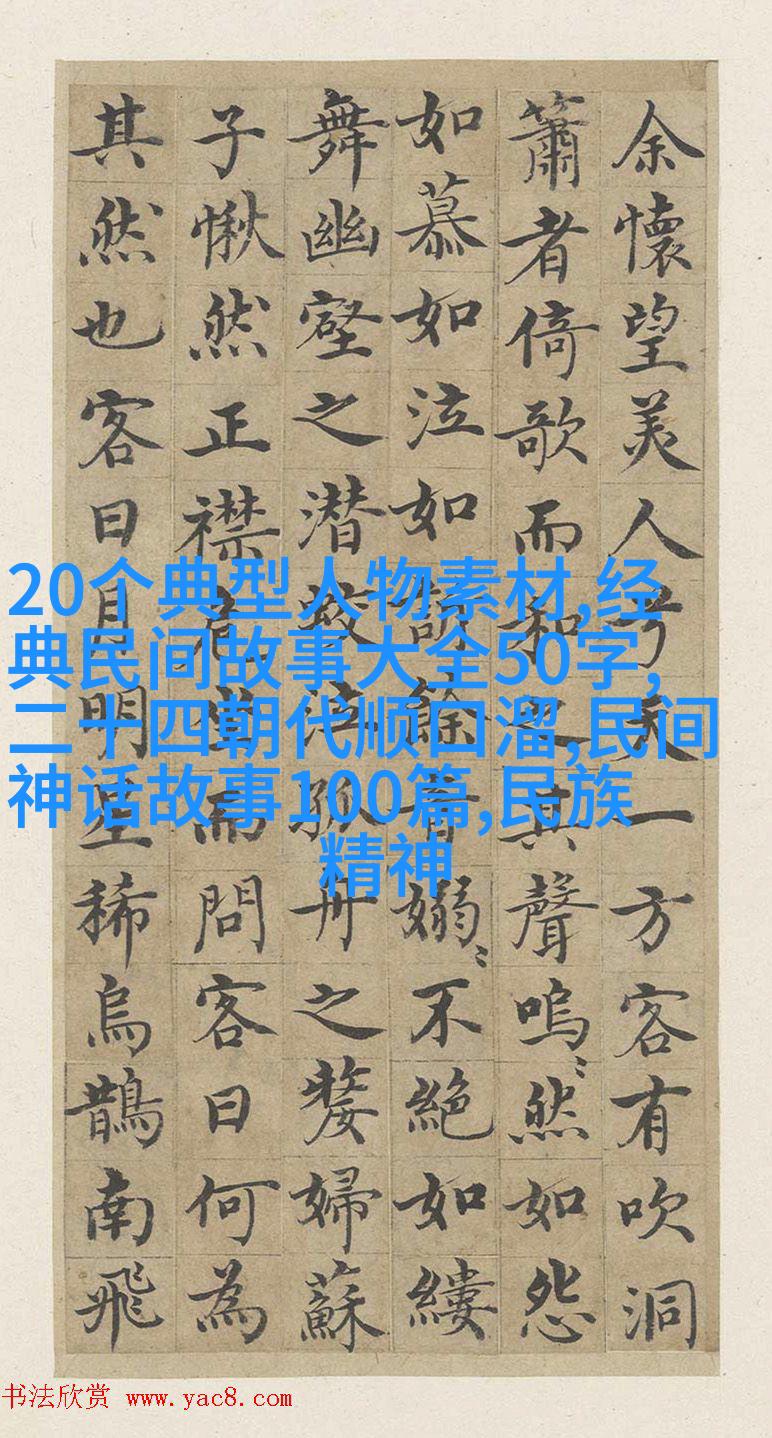 余懷望美人兮天一方客有吹洞
簫者倚歌而和之其聲嗚〻然如怨
如慕如泣如訴餘音嫋〻不絕如縷
舞幽壑之潛蛟泣孤舟之嫠婦蘇
子愀然正襟危坐而問客曰何為
其然也客曰月明星稀烏鵲南飛
20个典型人物素材,经
典民间故事大全50字,
二十四朝代顺口溜,民间
神话故事100篇,民族
精神
书法欣赏 www.yac8.com